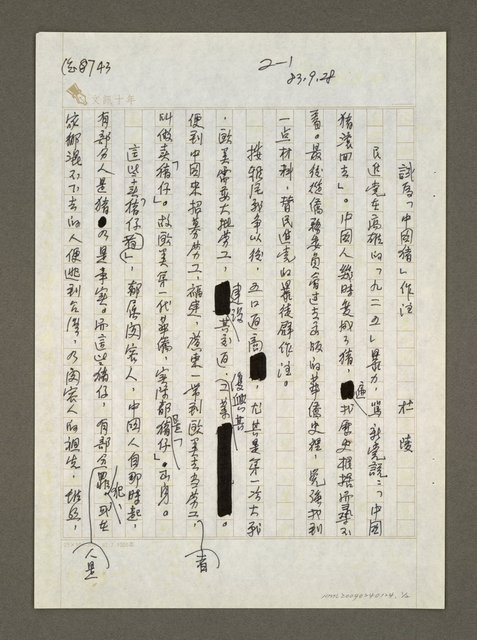 總8743
2-1
83.9.28
文訊十年
試為「中國豬」作注
杜陵
民進黨在高雄的「九二五」暴力,罵新黨說:「中國
豬滾回去」。中國人幾時變成了豬,遍找歷史根據而尋不
著。最後從僑務委員會過去出版的華僑史裡,勉強找到
一点材料,替民進黨的暴徒群作注。
按鴉片戰爭以後,五口通商,尤其是第一次大戰
,歐美需要大批勞工,建設其交通,工業復興其。
便到中國來招募勞工,福建,廣東一帶到歐美去当勞工者,
叫做「賣豬仔」。故歐美第一代華僑,實際都是「豬仔」出身。
這些「賣豬仔(豬)」,都屬閩客人,中國人自那時起,
有部分人是豬乃是事實。而這些豬仔,有部分人是犯罪或在
家鄉混不下去的人便逃到台灣,乃閩客人的祖先,堆
NML20090240124, 1/2